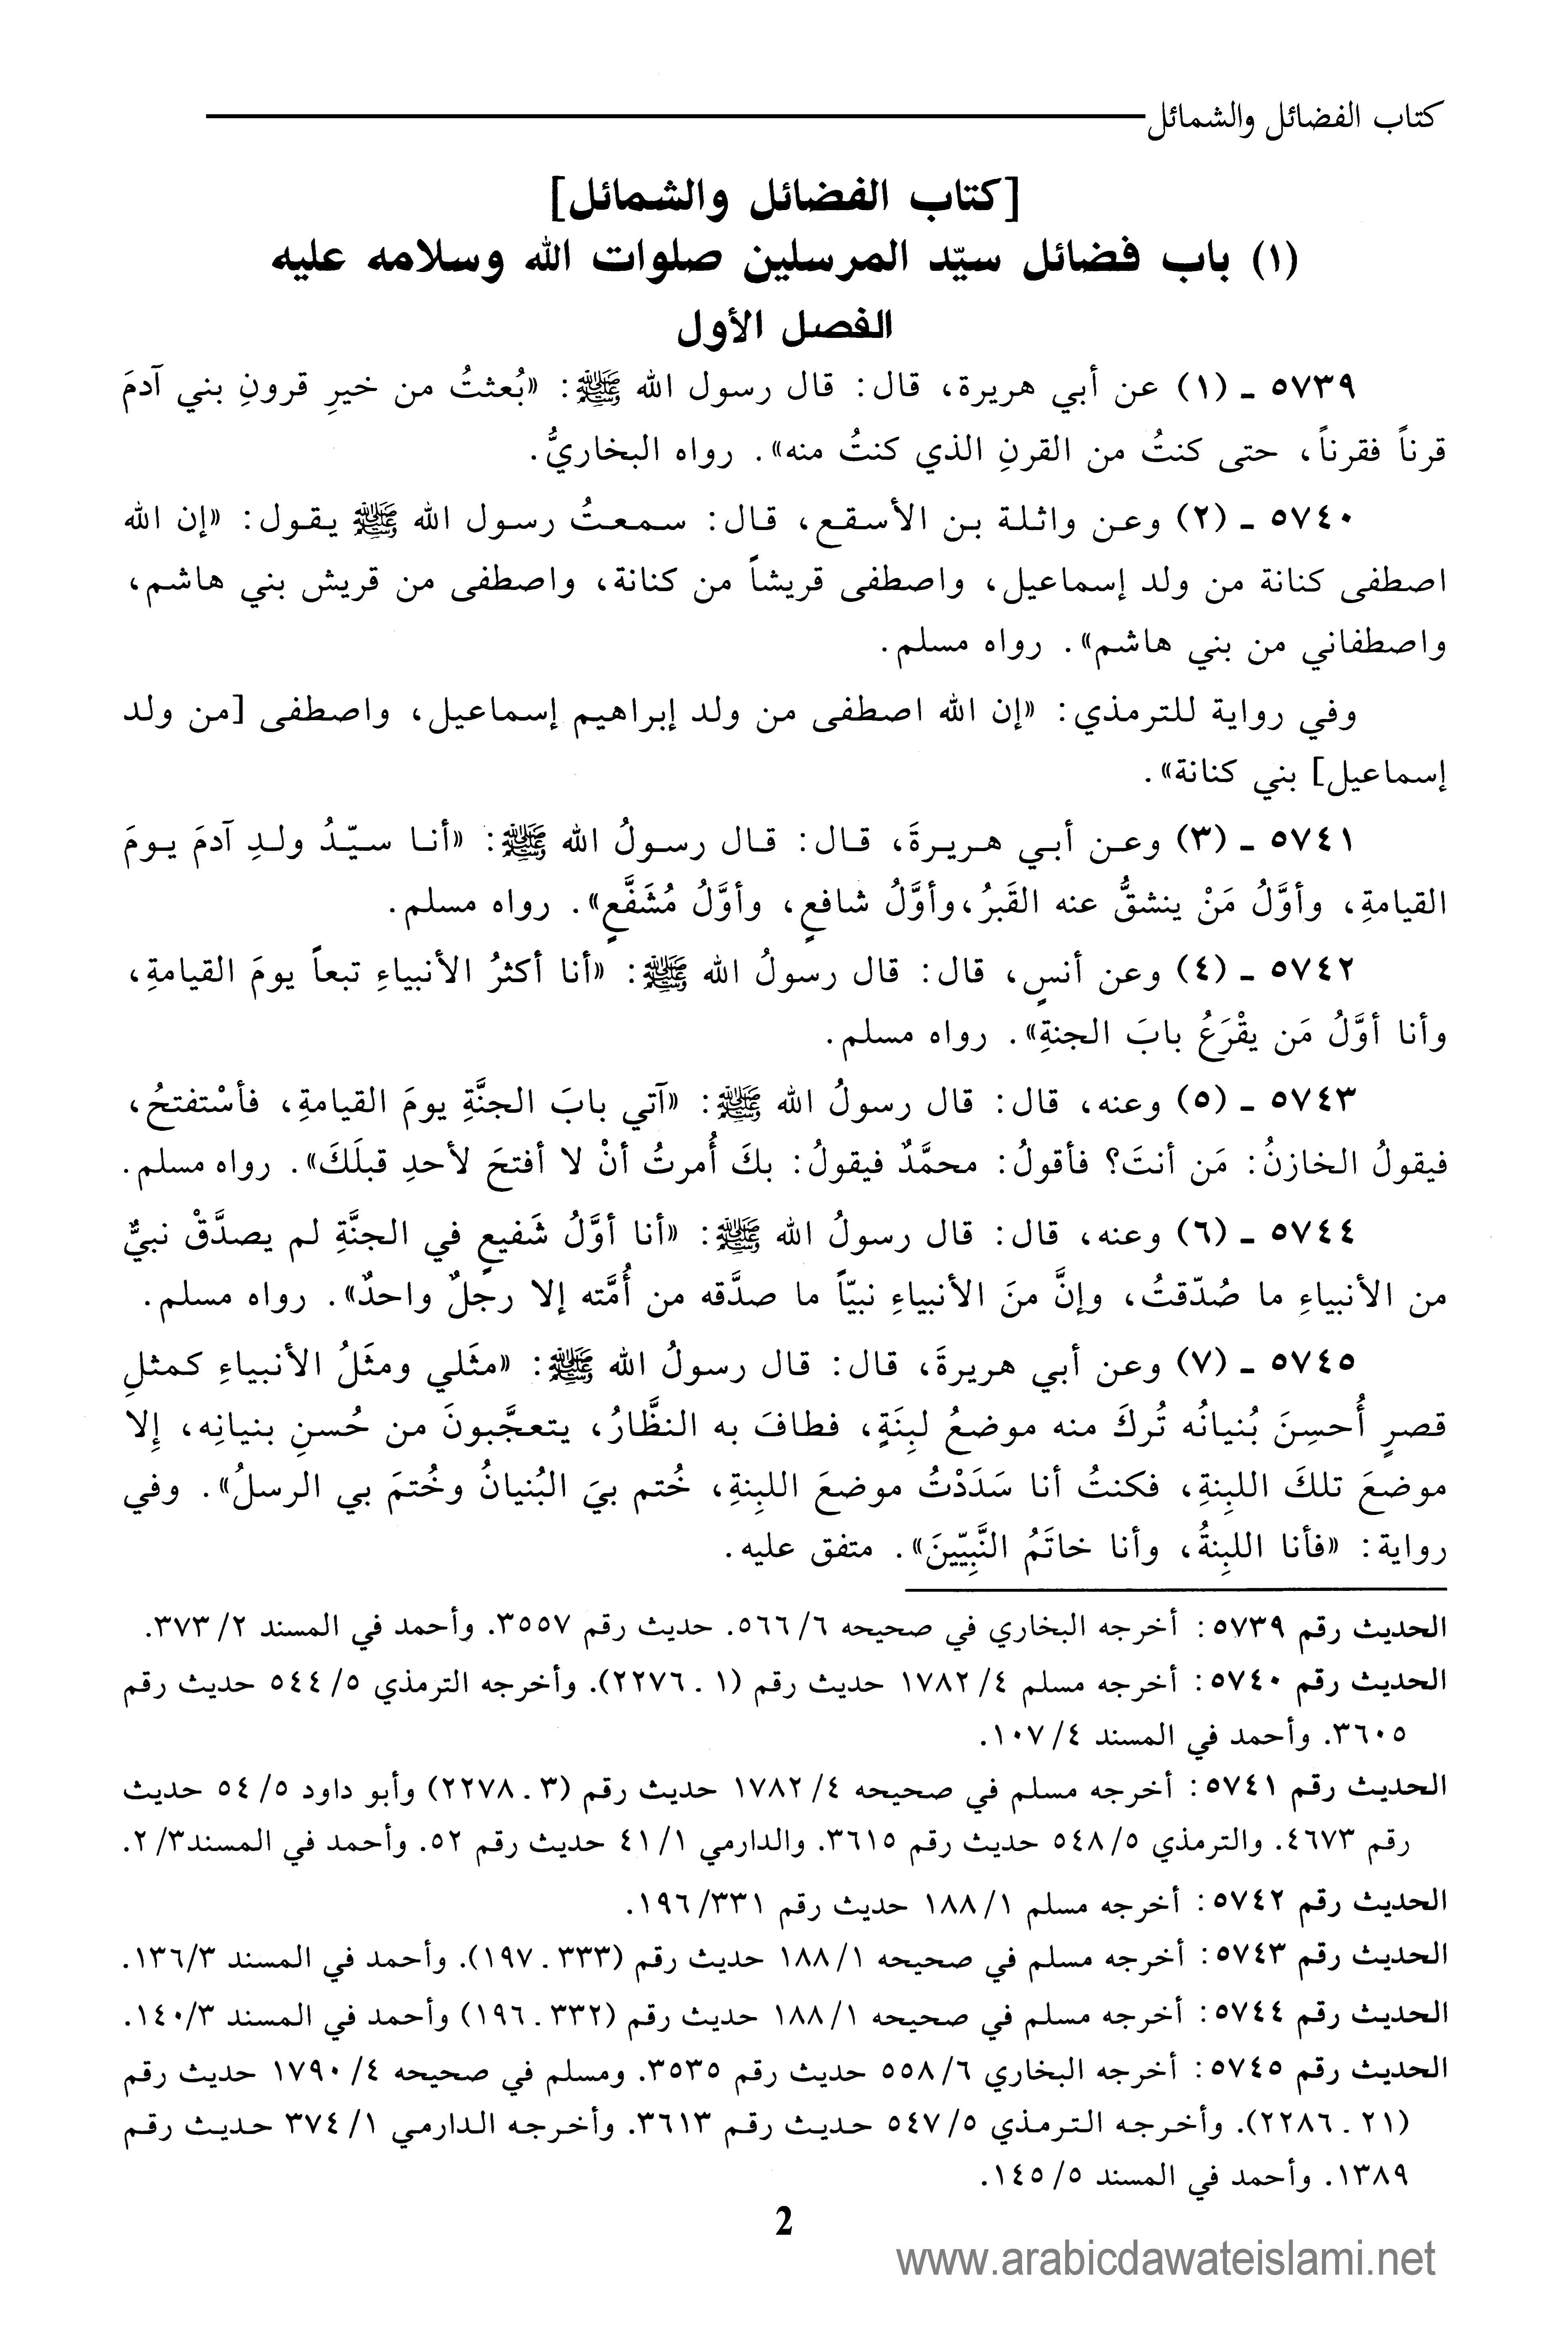 كتاب الفضائل والشمائل
[كتاب الفضائل والشمائل]
(١) باب فضائل سيّد المرسلين صلوات الله وسلامه عليه
الفصل الأول
٥٧٣٩ ـ (١) عن أبي هريرة، قال: قال رسول الله ﷺ: «بُعثتُ من خيرِ قرونِ بني آدمَ
قرناً فقرناً، حتى كنتُ من القرنِ الذي كنتُ منه». رواه البخاريُّ.
٥٧٤٠ ـ (٢) وعن واثلة بن الأسقع، قال: سمعتُ رسول الله ﷺ يقول: «إن الله
اصطفى كنانة من ولد إسماعيل، واصطفى قريشاً من كنانة، واصطفى من قريش بني هاشم،
واصطفاني من بني هاشم». رواه مسلم.
وفي رواية للترمذي: «إن الله اصطفى من ولد إبراهيم إسماعيل، واصطفى [من ولد
إسماعيل] بني كنانة».
٥٧٤١ ـ (٣) وعن أبي هريرةَ، قال: قال رسولُ الله ﷺ: «أنا سيّدُ ولدِ آدمَ يومَ
القيامةِ، وأوَّلُ مَنْ ينشقُّ عنه القَبرُ،وأوَّلُ شافعٍ، وأوَّلُ مُشَفَّعٍ». رواه مسلم.
٥٧٤٢ ـ (٤) وعن أنسٍ، قال: قال رسولُ الله ﷺ: «أنا أكثرُ الأنبياءِ تبعاً يومَ القيامةِ،
وأنا أوَّلُ مَن يقْرَعُ بابَ الجنةِ». رواه مسلم.
٥٧٤٣ ـ (٥) وعنه، قال: قال رسولُ الله ﷺ: «آتي بابَ الجنَّةِ يومَ القيامةِ، فأسْتفتحُ،
فيقولُ الخازنُ: مَن أنتَ؟ فأقولُ: محمَّدٌ فيقولُ: بكَ أُمرتُ أنْ لا أفتحَ لأحدِ قبلَكَ». رواه مسلم.
٥٧٤٤ ـ (٦) وعنه، قال: قال رسولُ الله ﷺ: «أنا أوَّلُ شَفيعٍ في الجنَّةِ لم يصدَّقْ نبيٌّ
من الأنبياءِ ما صُدّقتُ، وإنَّ منَ الأنبياءِ نبيّاً ما صدَّقه من أُمَّته إلا رجلٌ واحدٌ». رواه مسلم.
٥٧٤٥ ـ (٧) وعن أبي هريرةَ، قال: قال رسولُ الله ﷺ: «مثَلي ومثَلُ الأنبياءِ كمثلِ
قصرٍ أُحسِنَ بُنيانُه تُركَ منه موضعُ لبِنَةٍ، فطافَ به النظَّارُ، يتعجَّبونَ من حُسنِ بنيانِه، إِلا
موضعَ تلكَ اللبِنةِ، فكنتُ أنا سَدَدْتُ موضعَ اللبِنةِ، خُتم بيَ البُنيانُ وخُتمَ بي الرسلُ». وفي
رواية: «فأنا اللبِنةُ، وأنا خاتَمُ النَّبِيّينَ». متفق عليه.
الحديث رقم ٥٧٣٩: أخرجه البخاري في صحيحه ٦/ ٥٦٦. حديث رقم ٣٥٥٧. وأحمد في المسند ٢/ ٣٧٣.
الحديث رقم ٥٧٤٠: أخرجه مسلم ٤/ ١٧٨٢ حديث رقم (١ . ٢٢٧٦). وأخرجه الترمذي ٥/ ٥٤٤ حديث رقم
٣٦٠٥. وأحمد في المسند ٤/ ١٠٧.
الحديث رقم ٥٧٤١: أخرجه مسلم في صحيحه ٤/ ١٧٨٢ حديث رقم (٣ . ٢٢٧٨) وأبو داود ٥/ ٥٤ حديث
رقم ٤٦٧٣. والترمذي ٥/ ٥٤٨ حديث رقم ٣٦١٥. والدارمي ١/ ٤١ حديث رقم ٥٢. وأحمد في المسند٣/ ٢.
الحديث رقم ٥٧٤٢: أخرجه مسلم ١/ ١٨٨ حديث رقم ٣٣١/ ١٩٦.
الحديث رقم ٥٧٤٣: أخرجه مسلم في صحيحه ١/ ١٨٨ حديث رقم (٣٣٣ . ١٩٧). وأحمد في المسند ٣/ ١٣٦.
الحديث رقم ٥٧٤٤: أخرجه مسلم في صحيحه ١/ ١٨٨ حديث رقم (٣٣٢ . ١٩٦) وأحمد في المسند ٣/ ١٤٠.
الحديث رقم ٥٧٤٥: أخرجه البخاري ٦/ ٥٥٨ حديث رقم ٣٥٣٥. ومسلم في صحيحه ٤/ ١٧٩٠ حديث رقم
(٢١ . ٢٢٨٦). وأخرجه الترمذي ٥/ ٥٤٧ حديث رقم ٣٦١٣. وأخرجه الدارمي ١/ ٣٧٤ حديث رقم
١٣٨٩. وأحمد في المسند ٥/ ١٤٥.
2
www.arabicdawateislami.net